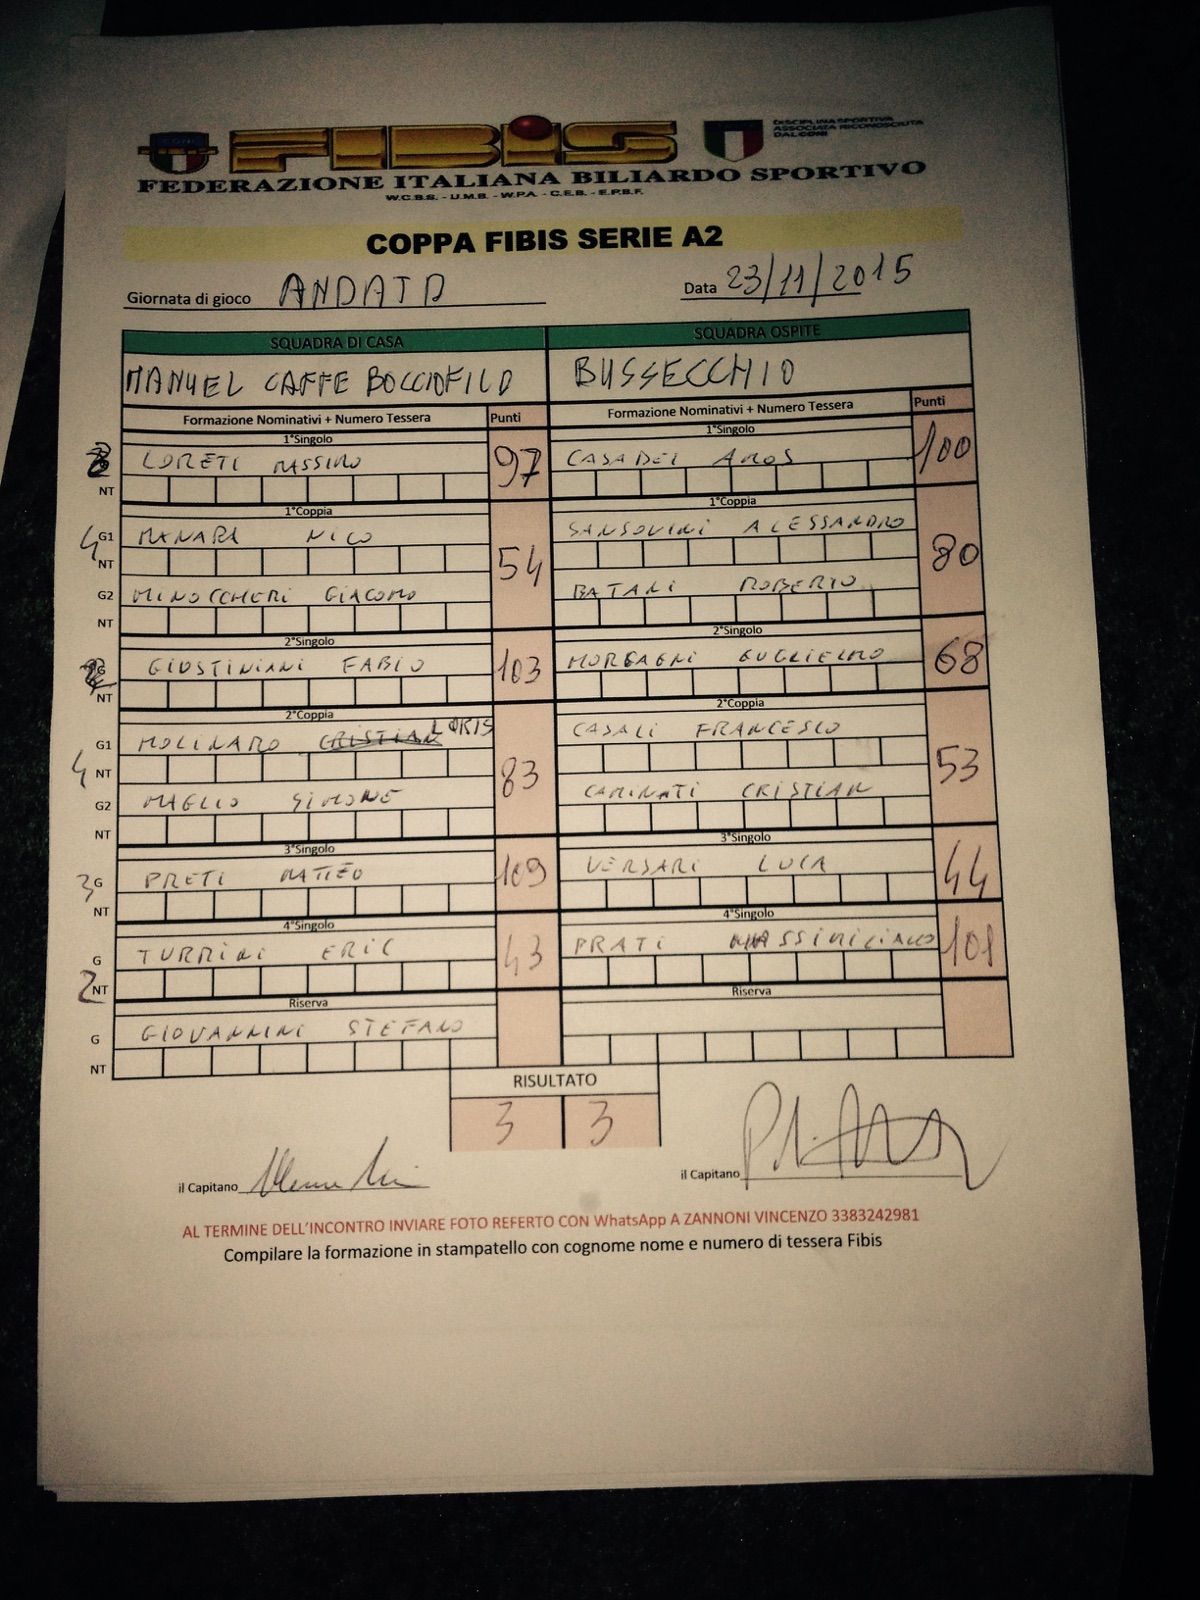 FIBIS
DISCIPLINA SPORTIVA
ASSOCIATA RICONOSCIUTA
DAL CONI
FEDERAZIONE ITALIANA BILIARDO SPORTIVO
W.C.B.S. - U.M.B. - W.P.A. - C.E.B. - E.P.B.F.
COPPA FIBIS SERIE A2
Giornata di gioco ANDATA Data 23/11/2015
SQUADRA DI CASA SQUADRA OSPITE
MANUEL CAFFE BOCCIOFILO BUSSECCHIO
Formazione Nominativi + Numero Tessera Punti Formazione Nominativi + Numero Tessera Punti
1°Singolo 1°Singolo
LORETI MASSIMO 97 CASADEI AMOS 100
NT
1°Coppia 1°Coppia
4 G1 MANARA NICO SANSOVINI ALESSANDRO
NT 54 80
G2 MINOCCHERI GIACOMO BATANI ROBERTO
NT
2°Singolo 2°Singolo
GIUSTINIANI FABIO 103 MORGAGNI GUGLIELMO 68
NT
2°Coppia 2°Coppia
G1 MOLINARO CRISTIAN LORIS CASALI FRANCESCO
4 NT 83 53
G2 MAGLIO SIMONE CAMINATI CRISTIAN
NT
3°Singolo 3°Singolo
3 G PRETI MATTEO 109 VERSARI LUCA 44
NT
4°Singolo 4°Singolo
G TURRINI ERIC 43 PRATI MASSIMILIANO 101
2 NT
Riserva Riserva
G GIOVANNINI STEFANO
NT
RISULTATO
3 3
il Capitano il Capitano
AL TERMINE DELL'INCONTRO INVIARE FOTO REFERTO CON WhatsApp A ZANNONI VINCENZO 3383242981
Compilare la formazione in stampatello con cognome nome e numero di tessera Fibis